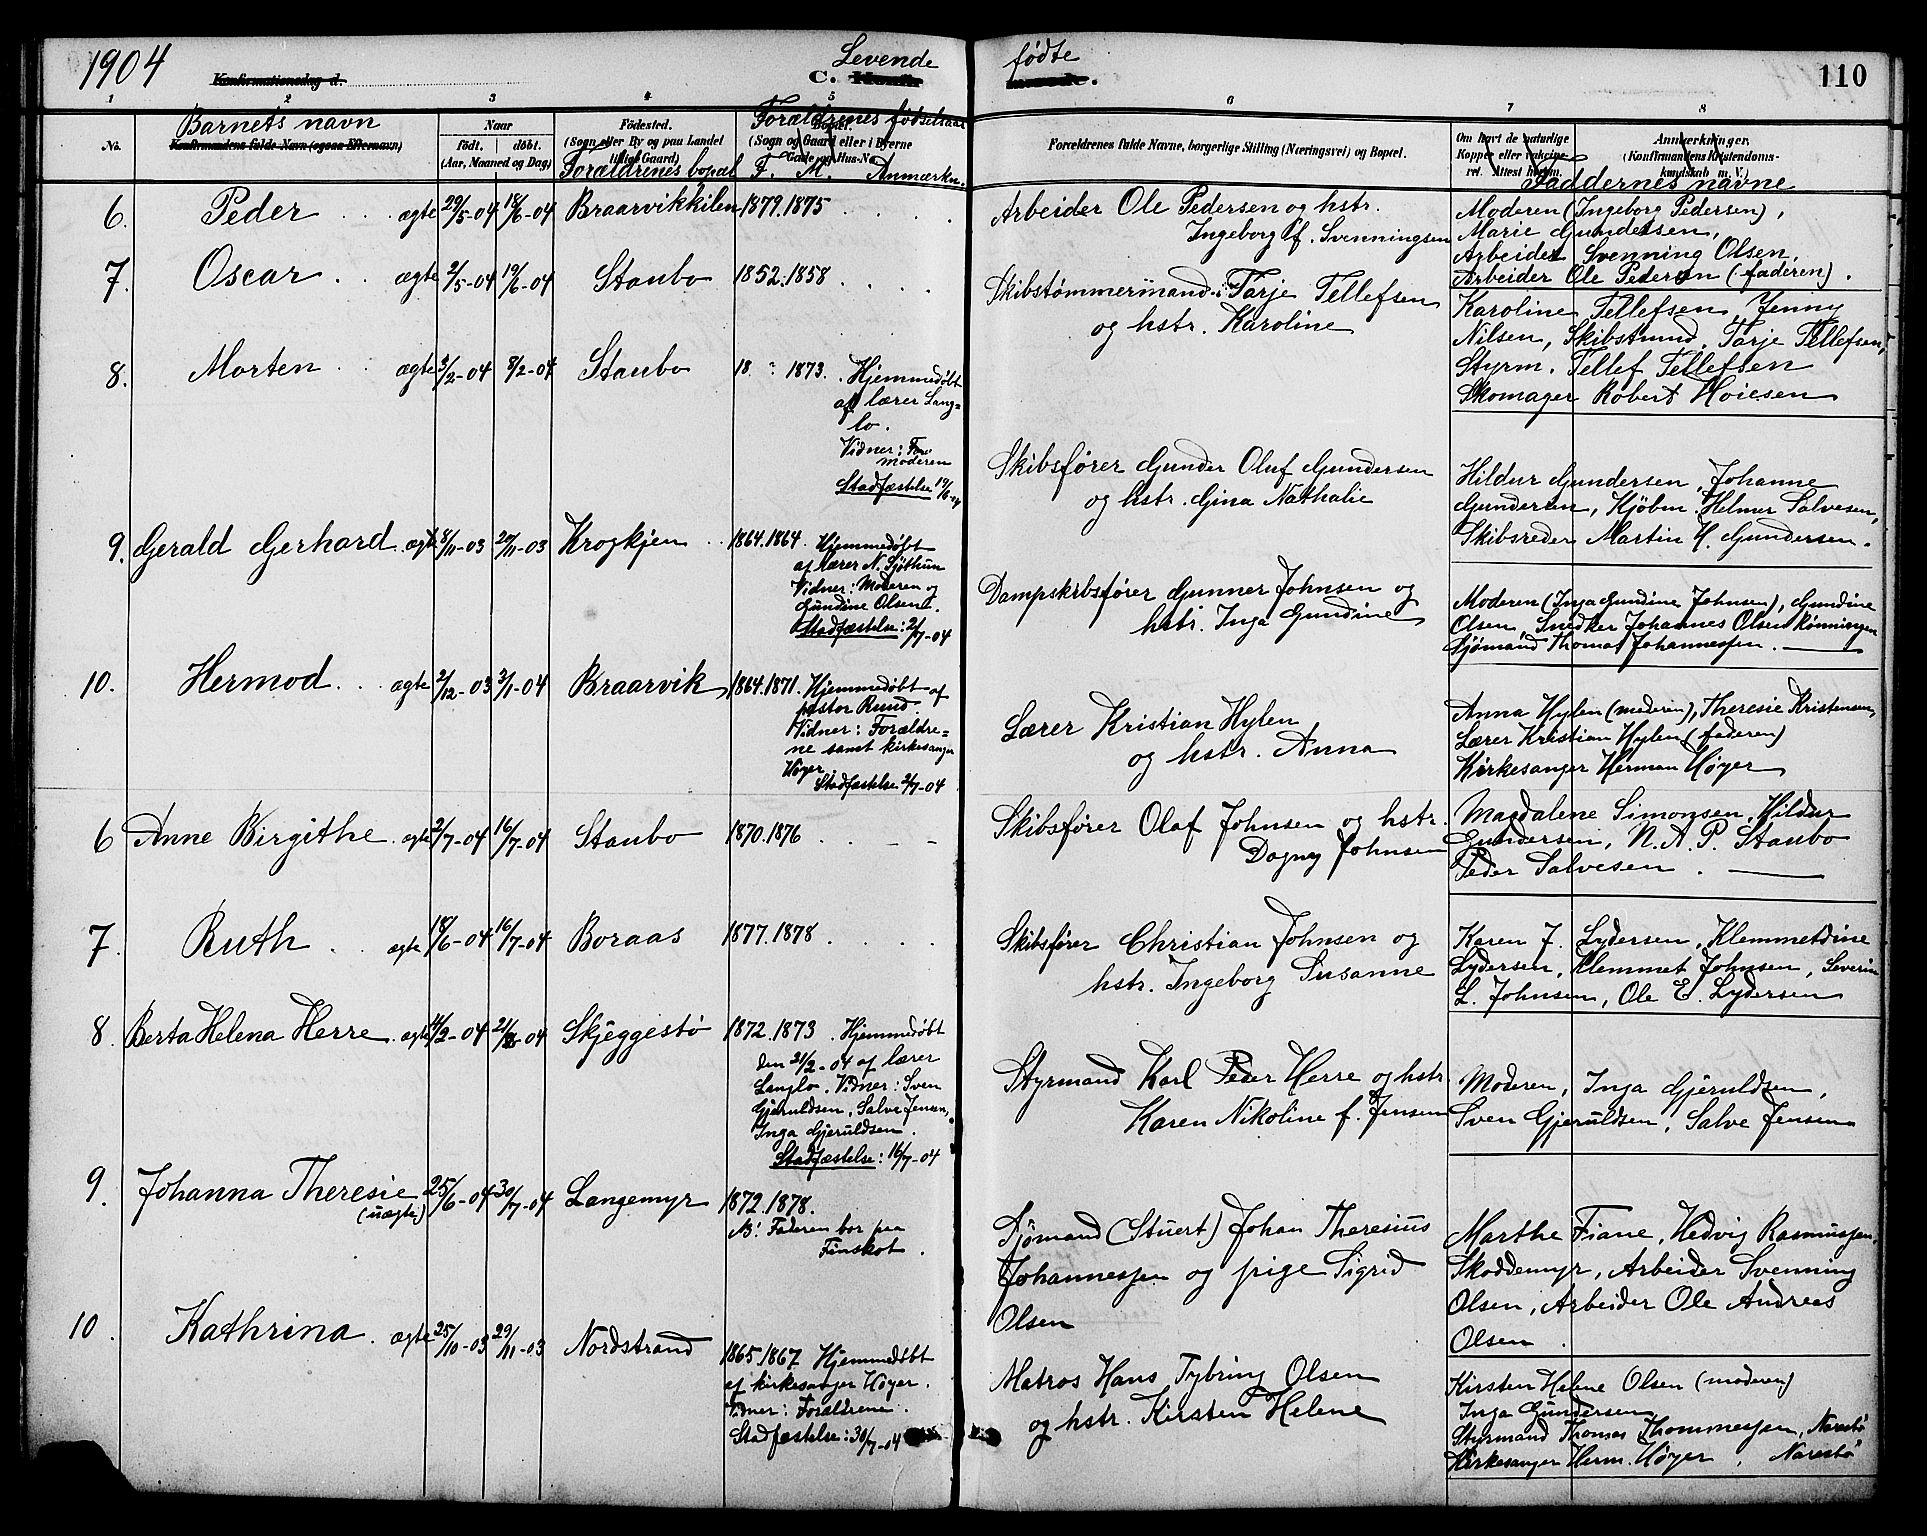 1904
Levende
fødte
Konfirmationsdag d.
C.
110
1 2 3 4 5 6 7 8
Barnets navn
Forældrenes fødselsaar
No.
Konfirmandens fulde Navn (ogsaa Efternavn)
Naar
født. døbt.
(Aar, Maaned og Dag)
Fødested.
(Sogn eller By og paa Landet
tillige Gaard)
Forældrenes bopæl
Bopæl.
(Sogn og Gaard eller i Byerne
Gade og Hus-No.
F. M. Anmærkn.
Forældrenes fulde Navne, borgerlige Stilling (Næringsvei) og Bopæl.
Om havt de naturlige
Kopper eller vaccine-
ret. Attest herom.
Anmærkninger,
(Konfirmandens Kristendoms-
kundskab m. V.)
Faddernes navne
6. Peder . . ægte 29/5-04 18/6-04 Braarvikkilen 1879. 1875 . . . .
Arbeider Ole Pedersen og hstr.
Ingeborg f. Svenningsen
Moderen (Ingeborg Pedersen),
Marie Gundersen,
Arbeider Svenning Olsen,
Arbeider Ole Pedersen (faderen).
7. Oscar . . ægte 2/5-04 19/6-04 Staubo 1852. 1858 . . . .
Skibstømmermand Tarje Tellefsen
og hstr. Karoline
Karoline Tellefsen, Jenny
Nilsen, Skibstmmd. Tarje Tellefsen,
Styrm. Tellef Tellefsen
Skomager Robert Hoiesen
8. Morten . . ægte 3/2-04 8/2-04 Staubo 18 " 1873. Hjemmedøbt
af lærer Lang=
lo.
Vidner:
moderen
Stadfæstelse 19/6-04
Skibsfører Gunder Oluf Gundersen
og hstr. Gina Nathalie
Hildur Gundersen, Johanne
Gundersen, Kjøbm. Helmer Salvesen,
Skibsreder Martin H. Gundersen.
9. Gerald Gerhard. ægte 8/11-03 29/11-03 Krogkjen . . 1864. 1864. Hjemmedøbt
af lærer N. Sjöthun
Vidner: Moderen og
Gundine Olsen.
Stadfæstelse: 2/7-04
Dampskibsfører Gunner Johnsen og
hstr. Inga Gundine
Moderen (Inga Gundine Johnsen), Gundine
Olsen, Snedker Johannes Olsen Rønningen
Sjømand Thomas Johannessen.
10. Hermod . . ægte 2/12-03 3/1-04 Braarvik 1864. 1871. Hjemmedøbt af
pastor Ruud.
Vidner: Forældre=
ne samt kirkesanger
Høyer
Stadfæstelse 2/7-04
Lærer Kristian Hylen
og hstr. Anna
Anna Hylen (moderen), Theresie Kristensen,
Lærer Kristian Hylen (faderen)
Kirkesanger Herman Høyer
6 Anne Birgithe . ægte 2/7-04 16/7-04 Staubo 1870. 1876 . . - -
Skibsfører Olaf Johnsen og hstr.
Dagny Johnsen
Magdalene Simonsen, Hildur
Gundersen, N. A. P. Staubo
Peder Salvesen .
7. Ruth . . ægte 18/6-04 16/7-04 Boraas 1877. 1878 . . . .
Skibsfører Christian Johnsen og
hstr. Ingeborg Susanne
Karen J. Lydersen, Klemmetdine
Lydersen, Klemmet Johnsen, Severin
L. Johnsen, Ole E. Lydersen
8. Berta Helena Herre . ægte 11/2-04 21/2-04 Skjeggestø 1872. 1873 . Hjemmedøbt
den 21/2-04 af lærer
Langlo. Vidner: Sven
Gjeruldsen, Salve Jensen,
Inga Gjeruldsen.
Stadfæstelse: 16/7-04
Styrmand Karl Peder Herre og hstr.
Karen Nikoline f. Jensen
Moderen, Inga Gjeruldsen,
Sven Gjeruldsen, Salve Jensen
9. Johanna Theresie 25/6-04 30/7-04 Langemyr 1872. 1878.
(uægte)
N: Faderen bor paa
Finskot .
Sjømand (Stuert) Johan Theresius
Johannessen og pige Sigrid
Olsen
Marthe Fiane, Hedvig Rasmussen,
Skoddemyr, Arbeider Svenning
Olsen, Arbeider Ole Andreas
Olsen .
10. Kathrina . ægte 25/10-03 29/11-03 Nordstrand 1865. 1867 Hjemmedøbt
af kirkesanger Høyer.
Vidner: Forældrene.
Stadfæstelse: 30/7-04
Matros Hans Tybring Olsen
og hstr. Kirsten Helene
Kirsten Helene Olsen (moderen)
Inga Gundersen
Styrmand Thomas Thommessen, Narestø
Kirkesanger Herm. Høyer, Narestø